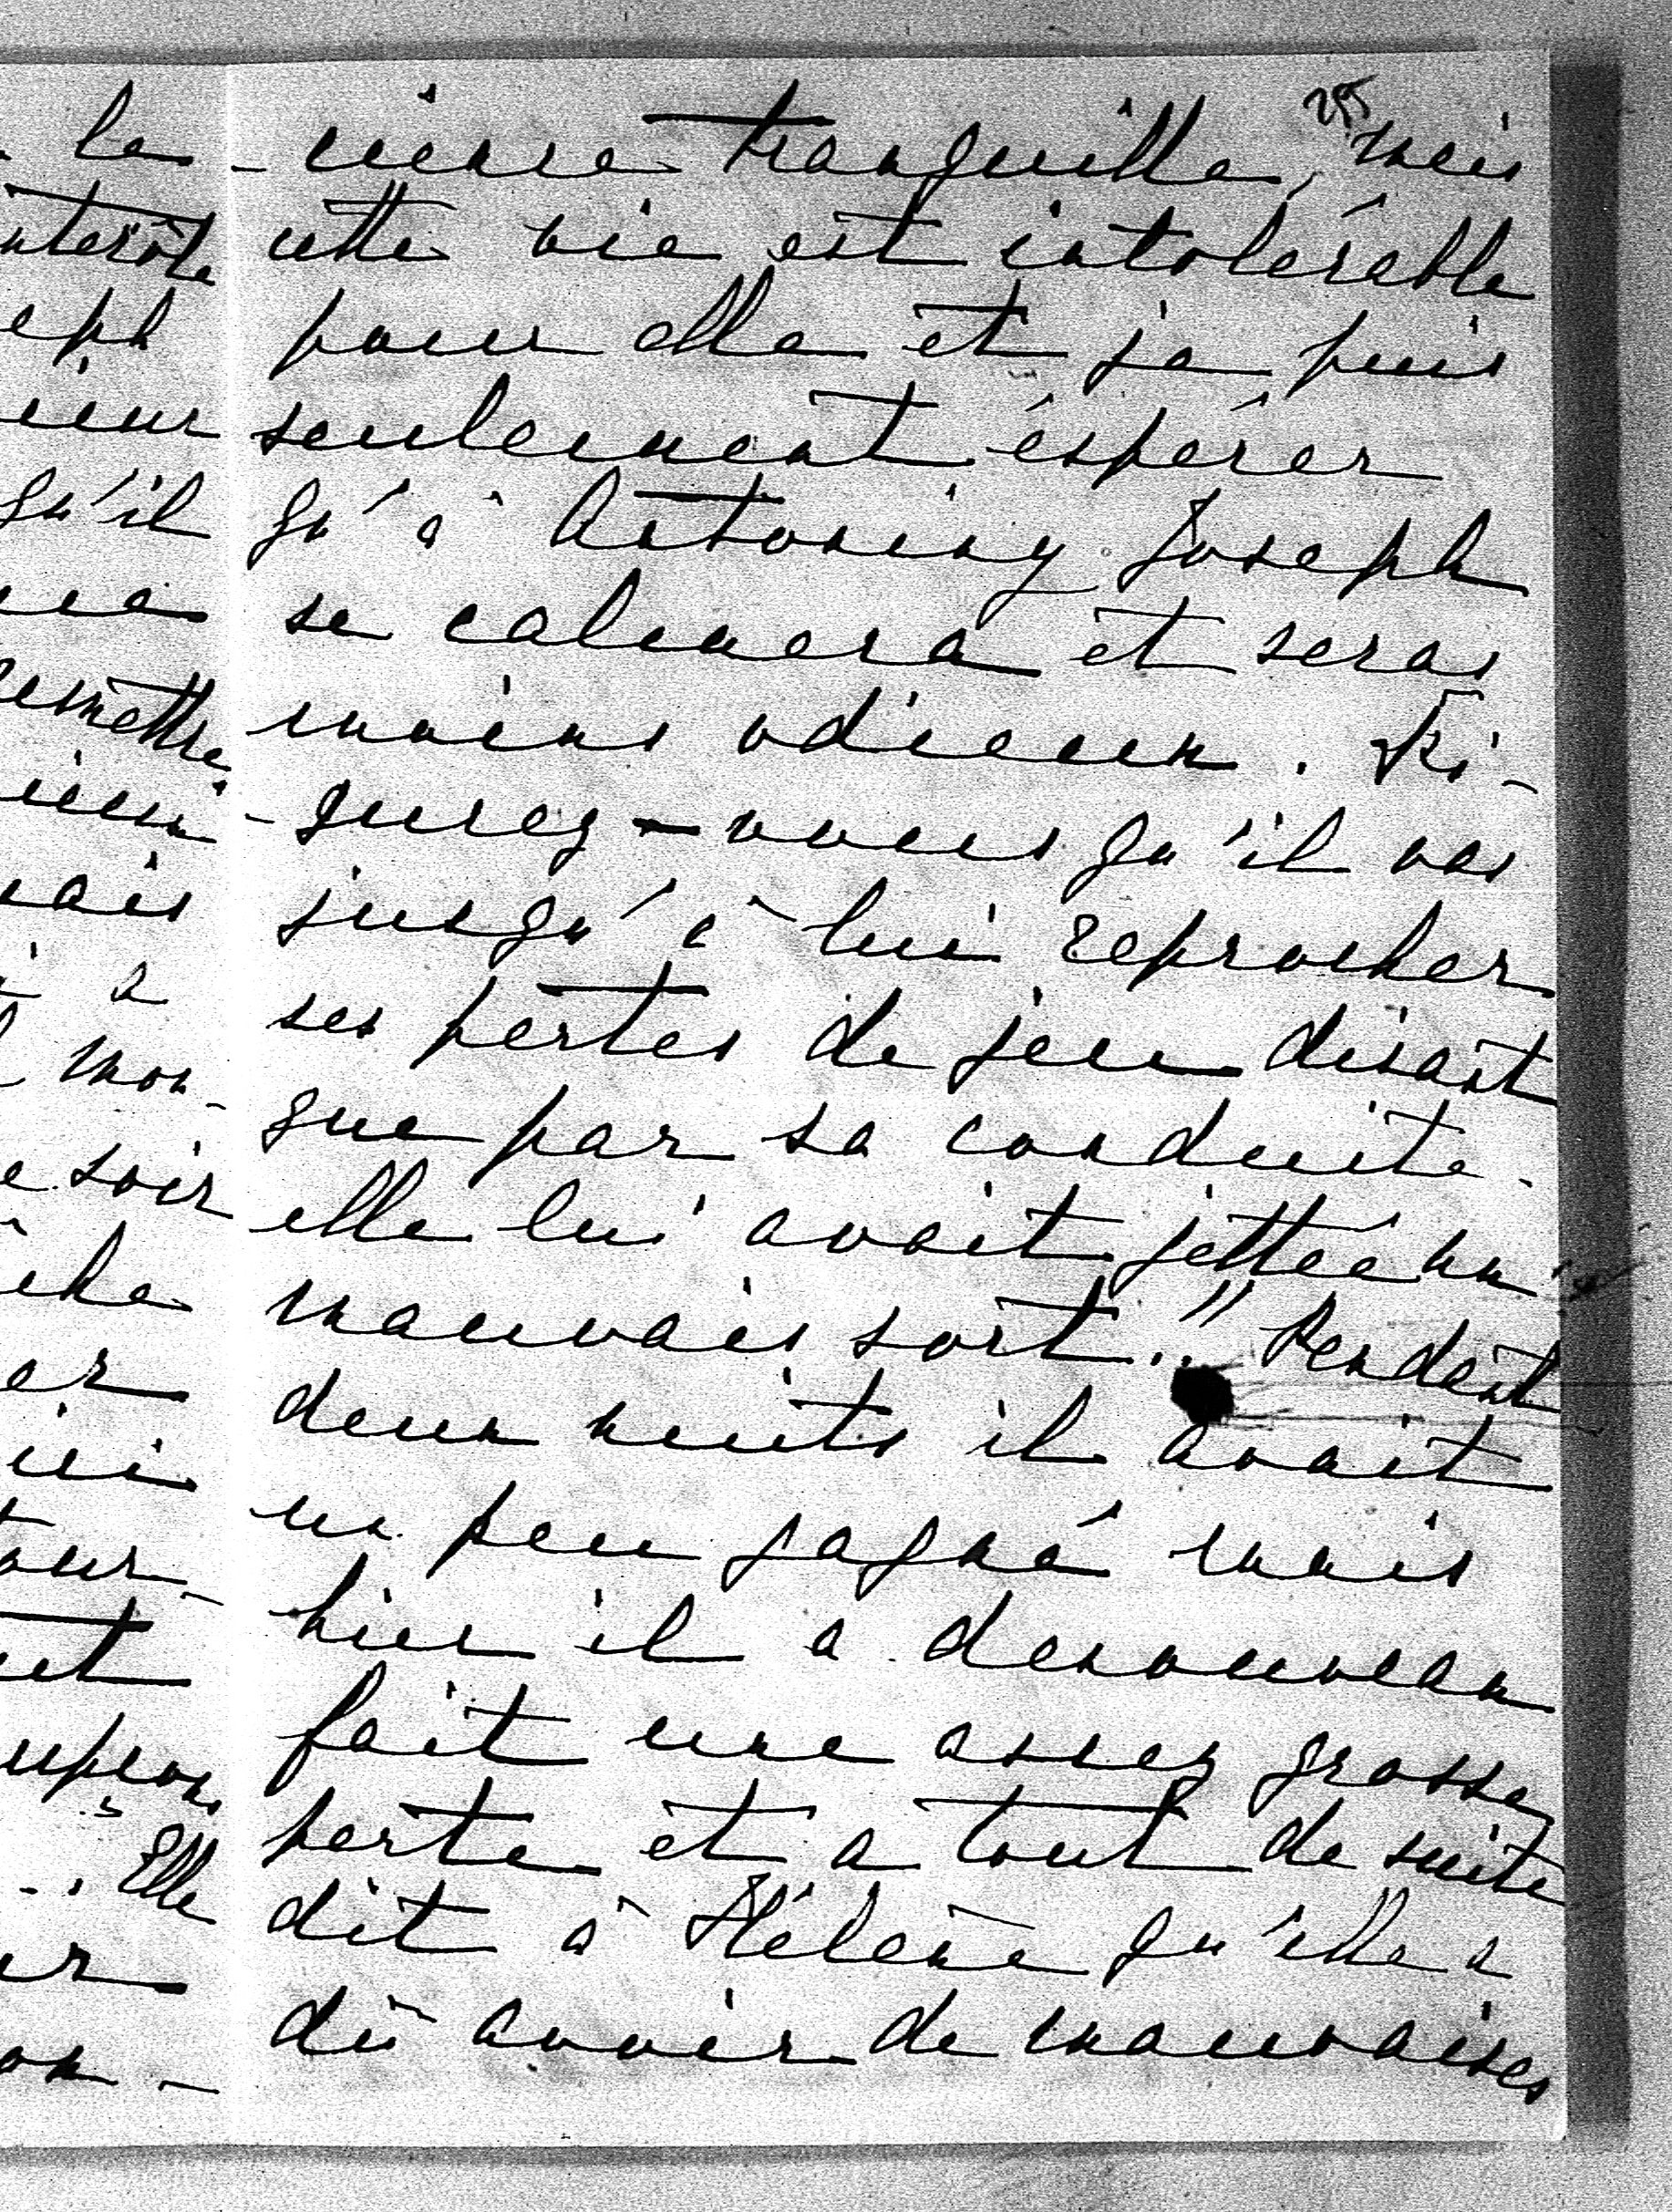 295
- cienne tranquille, mais
cette vie est intolérable
pour elle et je puis
seulement éspérer
qu'à Antoniny Joseph
se calmera et seras
moins odieux. Fi-
- gurez-vous qu'il vas
jusqu'à lui reprocher
ses pertes de jeu disant
que par sa conduite
elle lui avait jettée un
mauvais sort!! Pendant
deux nuits il avait
un peu gagné mais
hier il a denouveau
fait une assez grosse
perte et a tout de suite
dit à Hélène qu'elle a
dû avoir de mauvaises
la
eph
qu'il
mettre
a
mon-
soir
er
our-
Elle
on-